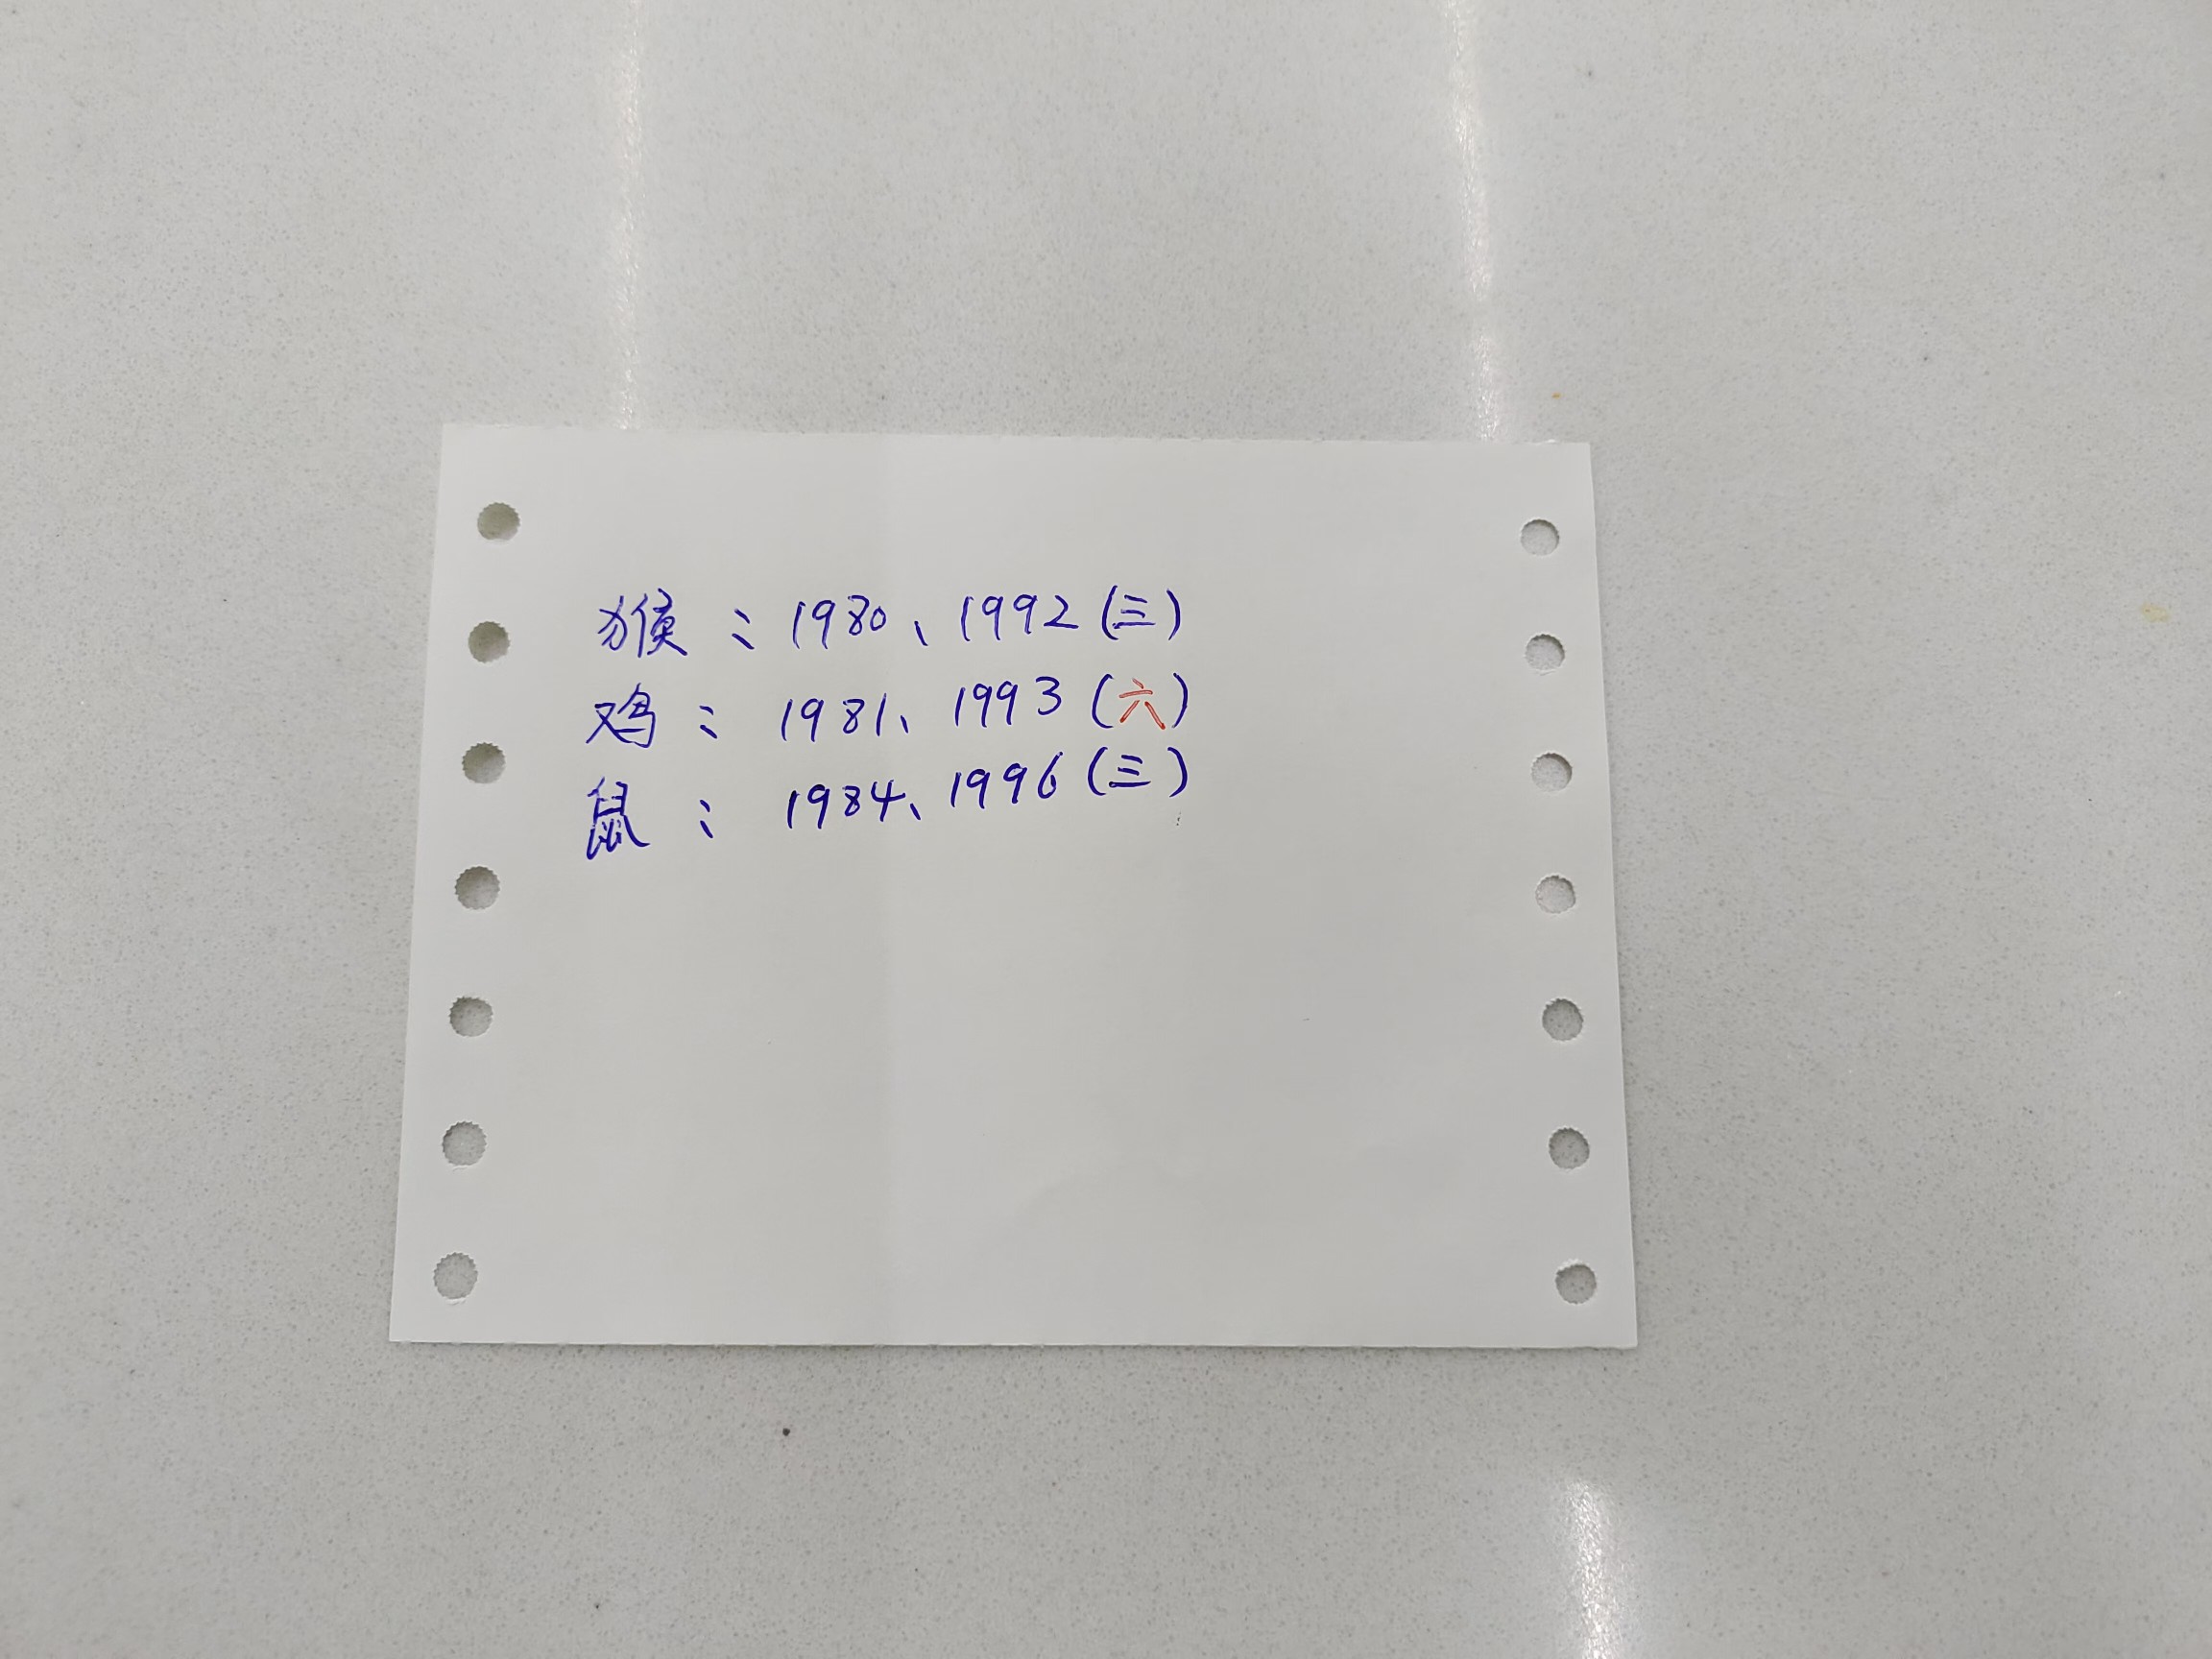 猴：1980、1992(三)
鸡：1981、1993(六)
鼠：1984、1996(三)